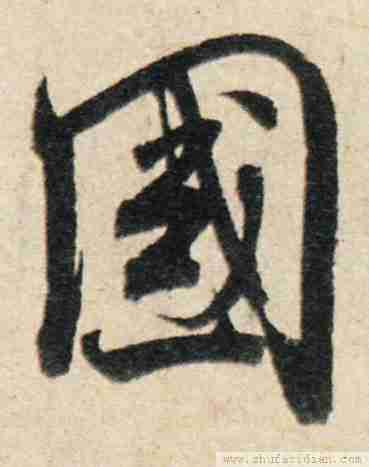 國
www.shufazidian.com